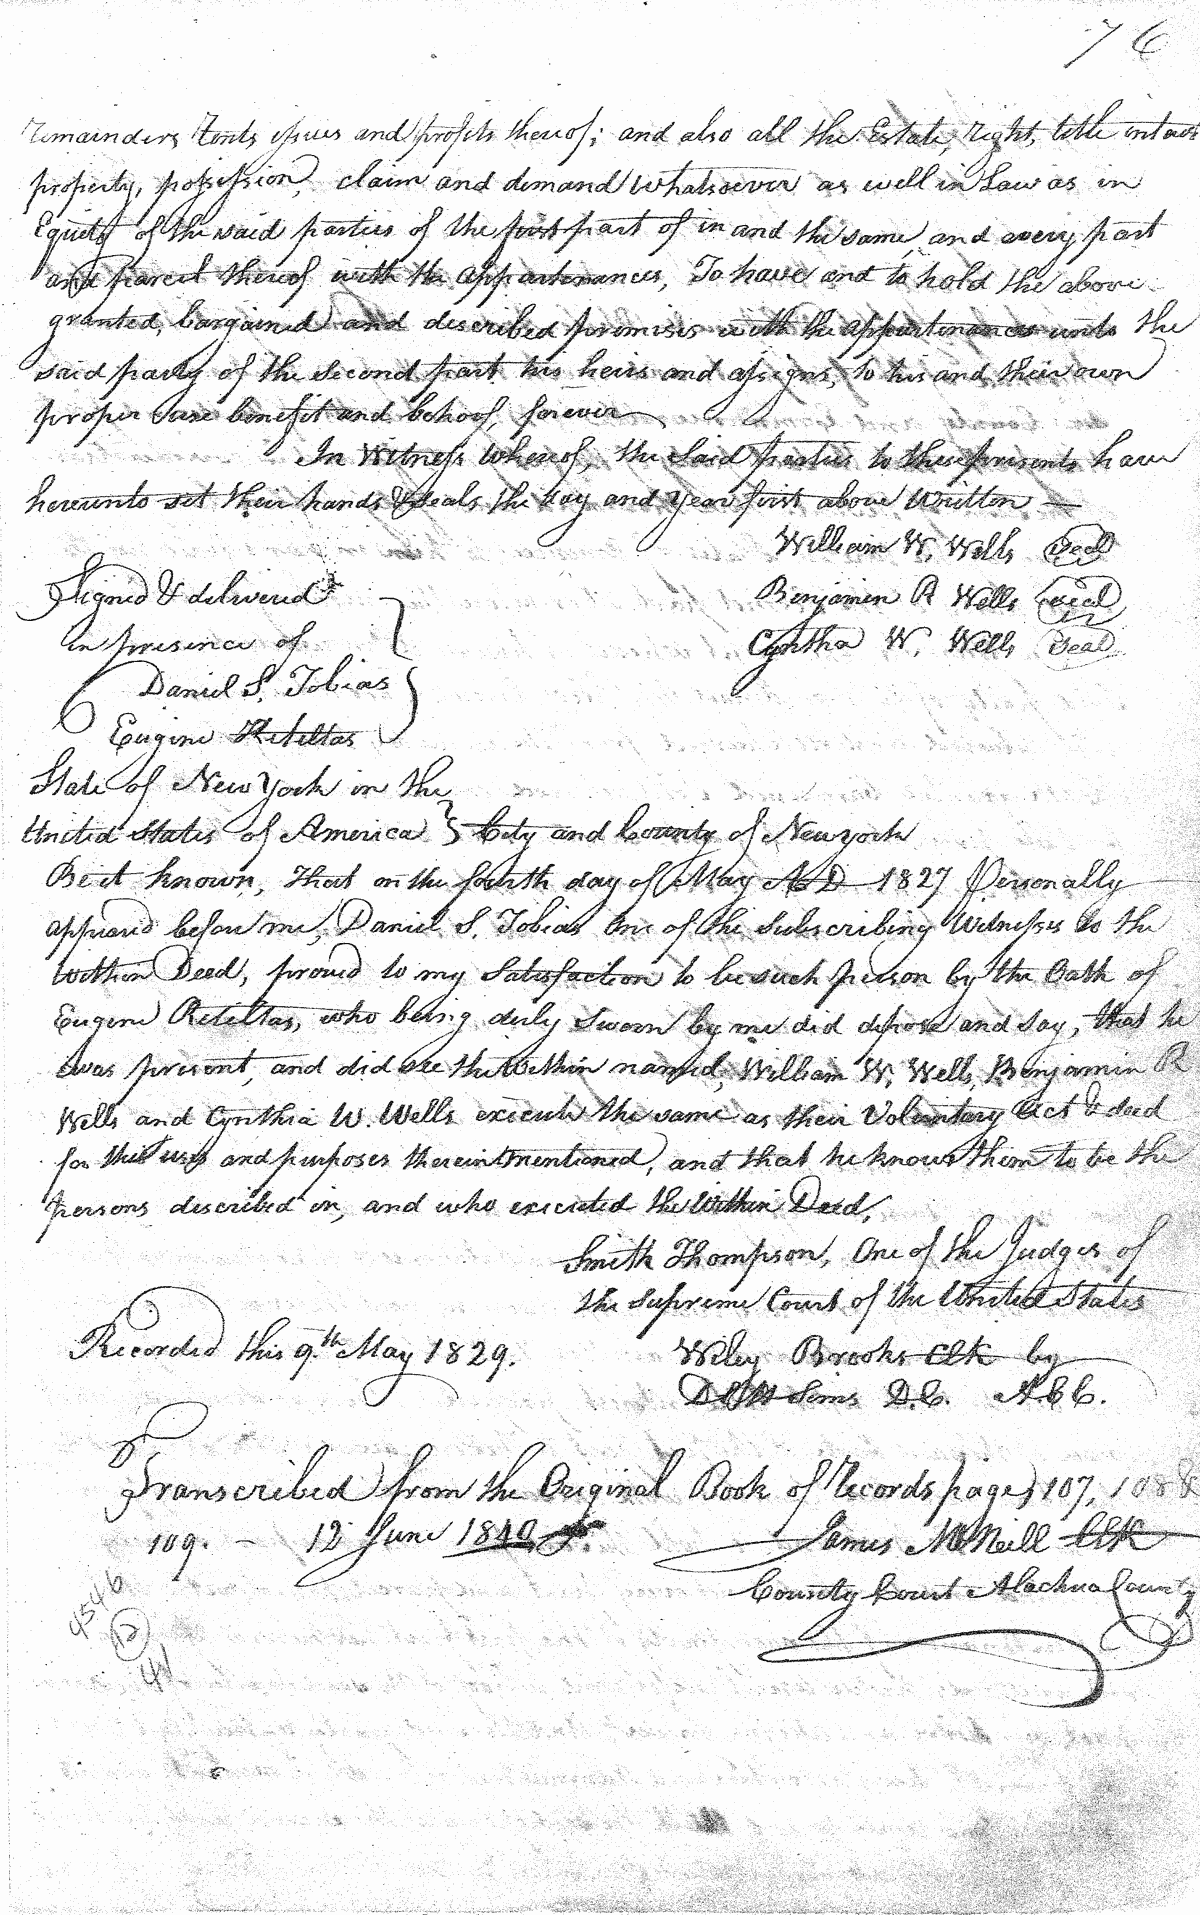 76
remainders, rents issues and profits thereof; and also all the Estate, right, title interest
property, possession, claim and demand whatsoever as well in Law as in
Equity of the said parties of the first part of in and the same, and every part
and parcel thereof with the appurtenances, To have and to hold the above
granted, bargained and described premises with the appurtenances unto the
said party of the second part his heirs and assigns, to his and their own
proper use benefit and behoof, forever
In Witness Whereof, the said parties to these presents have
hereunto set their hands & seals the day and year first above Written —
William W. Wells Seal
Signed & delivered
Benjamin R Wells Seal
in presence of
Cynthia W. Wells Seal
Daniel S. Tobias
Eugene Keteltas
State of New York in the
United States of America } City and County of New york
Be it known, That on the fourth day of May AD 1827 Personally
appeared before me, Daniel S. Tobias One of the Subscribing Witnesses to the
Within Deed, proved to my Satisfaction to be such person by the Oath of
Eugene Keteltas, who being duly Sworn by me did depose and say, that he
was present, and did see the Within named, William W. Wells, Benjamin R
Wells and Cynthia W. Wells execute the same as their Voluntary Act & deed
for the uses and purposes therein mentioned, and that he knows them to be the
persons described in, and who executed the Within Deed,
Smith Thompson, One of the Judges of
the Supreme Court of the United States
Recorded this 9.th May 1829.
Wiley Brooks Clk by
Sims D.C. A.C.C.
Transcribed from the Original Book of Records pages 107, 108 &
109. — 12 June 1840
James McNeill Clk
County Court Alachua County
4546
12
41